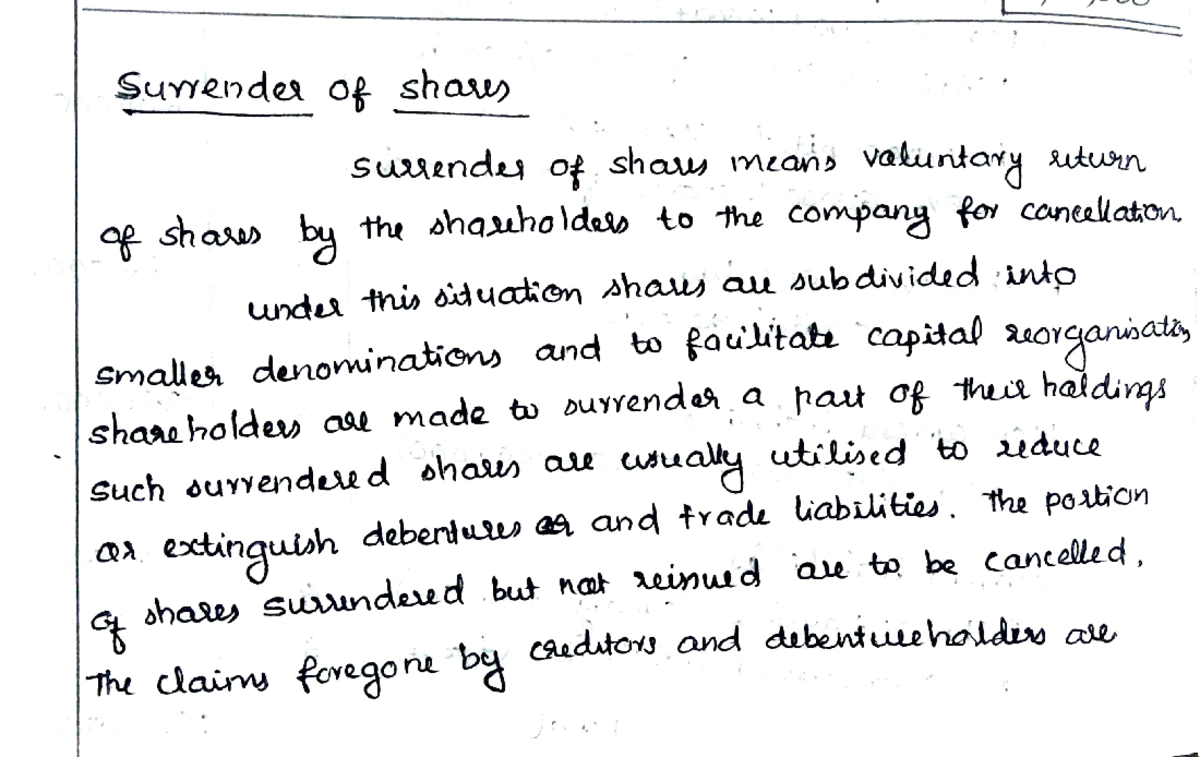 Surrender of shares
Surrender of shares means voluntary return
of shares by the shareholders to the company for cancellation.
under this situation shares are subdivided into
smaller denominations and to facilitate capital reorganisation
shareholders are made to surrender a part of their holdings
such surrendered shares are usually utilised to reduce
or extinguish debentures and trade liabilities. The portion
of shares surrendered but not reissued are to be cancelled.
The claims foregone by creditors and debentureholders are